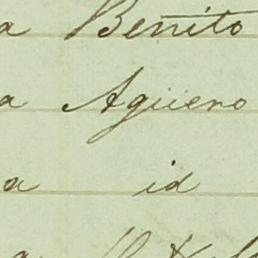 a Benito
a Agüero
a id
a